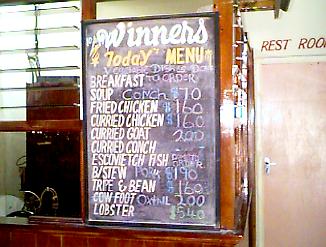 Winners
Today's MENU
BREAKFAST TO ORDER
SOUP CONCH $70
FRIED CHICKEN $160
CURRIED CHICKEN $160
CURRIED GOAT 200
CURRIED CONCH -
ESCONIETCH FISH
B/STEW PORK $190
TRIPE & BEAN $160
COW FOOT OXTAIL 200
LOBSTER $540
REST ROO